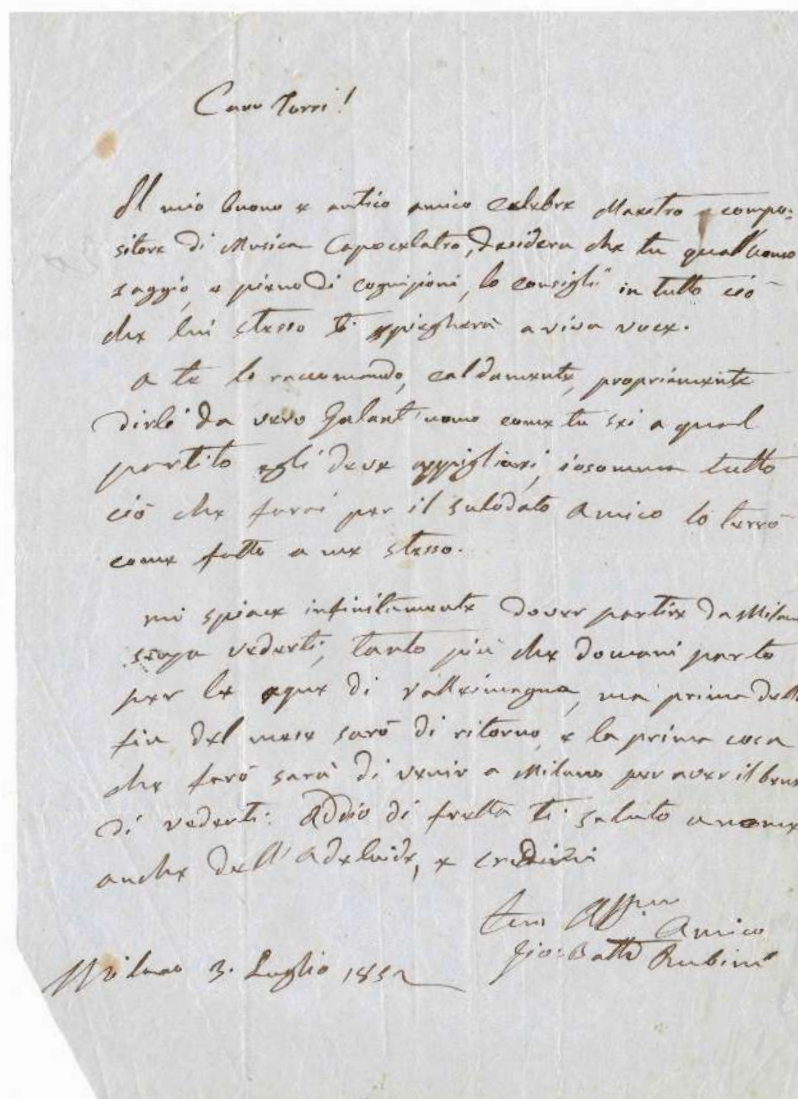 Caro Torri!
Il mio buono e antico amico celebre Maestro e compo-
sitore di Musica Capocelatro, desidera che tu qual'uomo
saggio, e pieno di cognizioni, lo consigli in tutto ciò
che lui stesso ti spiegherà a viva voce.
a te lo raccomando, caldamente, propriamente
dirle da vero galant'uomo come tu sei a qual
partito egli deve appigliarsi, insomma tutto
ciò che farai per il sulodato amico lo terrò
come fatto a me stesso.
mi spiace infinitamente dover partire da Milan
senza vederti, tanto più che domani parto
per le aque di valleimagna, ma prima dell
fin del mese sarò di ritorno, e la prima cosa
che farò sarà di venir a Milano per aver il bene
di vederti: Addio di fretta ti saluto a nome
anche dell'Adelaide, e credimi
tuo Aff.mo Amico
Gio: Batta Rubini
Milano 3. Luglio 1852